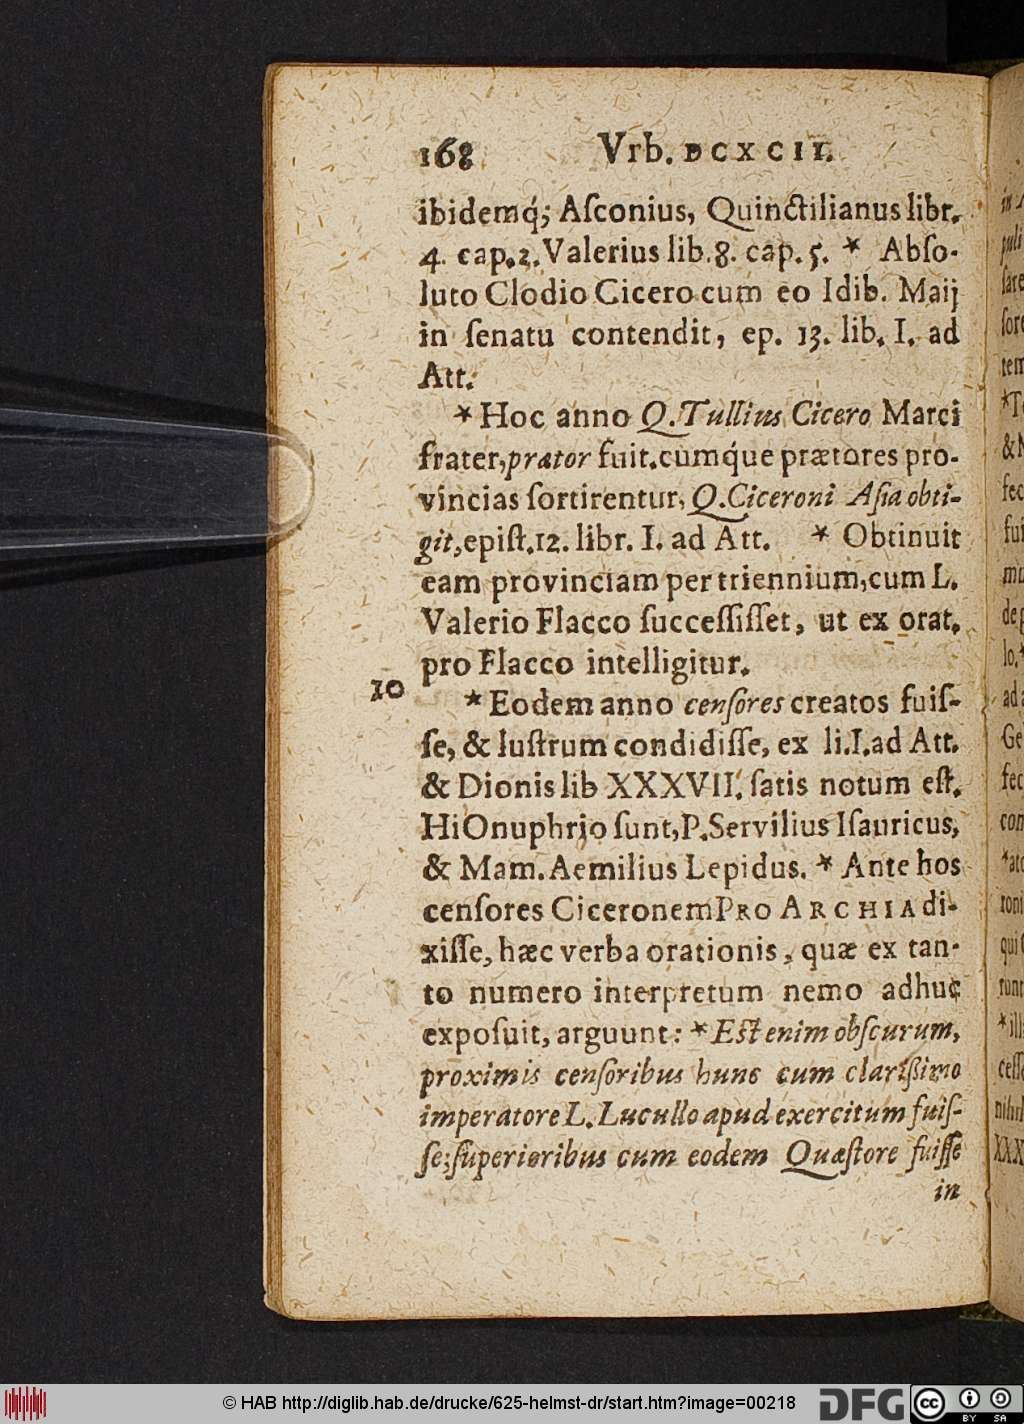 168 Vrb. DCXCII.
ibidemq́; Aſconius, Quinctilianus libr.
4. cap.2. Valerius lib.8. cap. 5. * Abſo-
luto Clodio Cicero cum eo Idib. Maij
in ſenatu contendit, ep. 13. lib. I. ad
Att.
* Hoc anno Q. Tullius Cicero Marci
frater, prætor fuit. cumq́ue prætores pro-
vincias ſortirentur, Q. Ciceroni Aſia obti-
git, epiſt. 12. libr. I. ad Att. * Obtinuit
eam provinciam per triennium, cum L.
Valerio Flacco ſucceſſiſſet, ut ex orat.
pro Flacco intelligitur.
10
* Eodem anno cenſores creatos fuiſ-
ſe, & luſtrum condidiſſe, ex li.I. ad Att.
& Dionis lib XXXVII. ſatis notum eſt.
Hi Onuphrio ſunt, P. Servilius Iſauricus,
& Mam. Aemilius Lepidus. * Ante hos
cenſores Ciceronem PRO ARCHIA di-
xiſſe, hæc verba orationis, quæ ex tan-
to numero interpretum nemo adhuc
expoſuit, arguunt: * Eſt enim obſcurum,
proximis cenſoribus hunc cum clarißimo
imperatore L. Lucullo apud exercitum fuiſ-
ſe; ſuperioribus cum eodem Quæſtore fuiſſe
in
© HAB http://diglib.hab.de/drucke/625-helmst-dr/start.htm?image=00218
DFG
cc BY SA